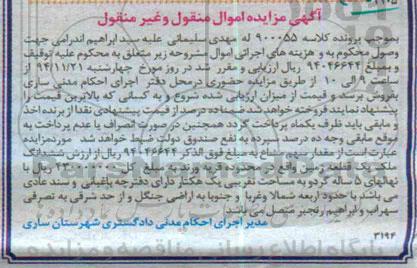 آگهی مزایده اموال منقول وغیر منقول
بموجب پرونده کلاسه ۹۰۰۰۵۵ له مهدی سلیمانی علیه سید ابراهیم اندرامی جهت
وصول محکوم به و هزینه های اجرائی اموال مشروحه زیر متعلق به محکوم علیه توقیف
و بمبلغ ۹۴۰۴۶۶۴۴ ریال ارزیابی و مقرر شد در روز مورخ چهارشنبه ۹۴/۱۱/۲۱ از
ساعت ۹ الی ۱۰ از طریق مزایده حضوری در محل دفتر اجرای احکام مدنی ساری
بفروش برسد و قیمت از میزان ارزیابی شده شروع و به کسانی که بالاترین قیمت را
پیشنهاد نمایند فروخته خواهد شد ضمنا ده درصد از قیمت پیشنهادی نقدا از برنده اخذ
و مابقی باید ظرف یکماه پرداخت گردد همچنین در صورت انصراف یا عدم پرداخت به
موقع مابقی وجه ده درصد سپرده به نفع صندوق دولت ضبط خواهد شد موردمزایده
عبارت است از مقدار مشاع به مبلغ فوق الذکر ۹۴۰۴۶۶۴۴ ریال از ارزش ششدانگ
ملک یک قطعه زمین واقع در محدوده قریه ورند به مبلغ ریال با
نهالهای ۵ ساله گردو به مساحت تقریبی یک هکتار دارای دفترچه باغبانی و سند عادی
می باشد با حدود اربعه شمالا وغربا و جنوبا به اراضی جنگل و از حد شرقی به تصرفی
سهراب و ابراهیم رنجبر متصل می باشد
مدیر اجرای احکام مدنی دادگستری شهرستان ساری
۳۱۹۴